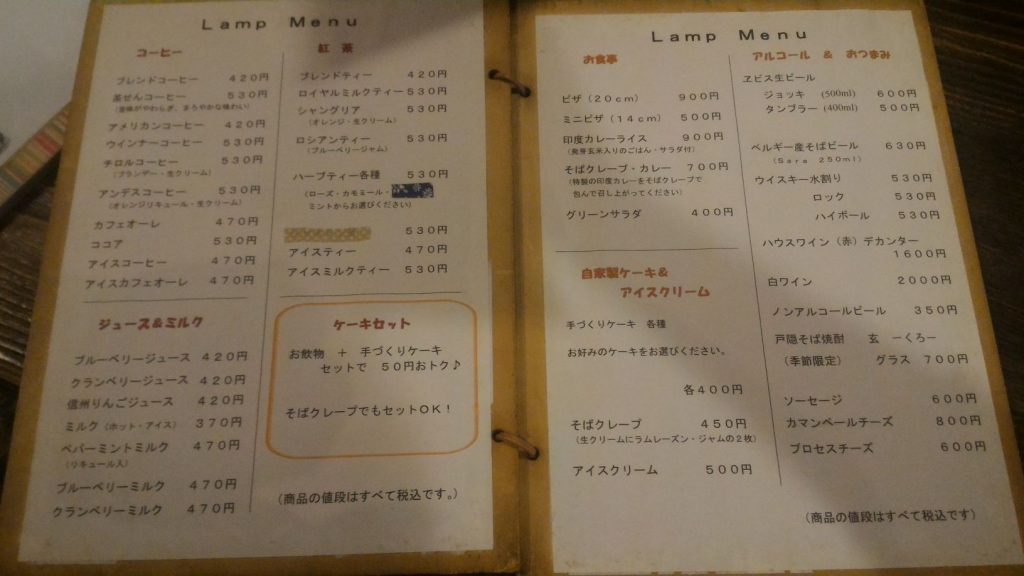 Lamp Menu
コーヒー
ブレンドコーヒー 420円
茶せんコーヒー 530円
(苦味がやわらぎ、まろやかな味わい)
アメリカンコーヒー 420円
ウインナーコーヒー 530円
チロルコーヒー 530円
(ブランデー・生クリーム)
アンデスコーヒー 530円
(オレンジリキュール・生クリーム)
カフェオーレ 470円
ココア 530円
アイスコーヒー 470円
アイスカフェオーレ 470円
ジュース&ミルク
ブルーベリージュース 420円
クランベリージュース 420円
信州りんごジュース 420円
ミルク(ホット・アイス) 370円
ペパーミントミルク 470円
(リキュール入)
ブルーベリーミルク 470円
クランベリーミルク 470円
紅茶
ブレンドティー 420円
ロイヤルミルクティー 530円
シャングリア 530円
(オレンジ・生クリーム)
ロシアンティー 530円
(ブルーベリージャム)
ハーブティー各種 530円
(ローズ・カモミール・
ミントからお選びください)
530円
アイスティー 470円
アイスミルクティー 530円
ケーキセット
お飲物 + 手づくりケーキ
セットで 50円おトク♪
そばクレープでもセットOK!
(商品の値段はすべて税込です。)
Lamp Menu
お食事
ピザ(20cm) 900円
ミニピザ(14cm) 500円
印度カレーライス 900円
(発芽玄米入りのごはん・サラダ付)
そばクレープ・カレー 700円
(特製の印度カレーをそばクレープで
包んで召し上がってください)
グリーンサラダ 400円
自家製ケーキ&
アイスクリーム
手づくりケーキ 各種
お好みのケーキをお選びください。
各400円
そばクレープ 450円
(生クリームにラムレーズン・ジャムの2枚)
アイスクリーム 500円
アルコール & おつまみ
ヱビス生ビール
ジョッキ (500ml) 600円
タンブラー (400ml) 500円
ベルギー産そばビール 630円
(Sara 250ml)
ウイスキー水割り 530円
ロック 530円
ハイボール 530円
ハウスワイン(赤)デカンター
1600円
白ワイン 2000円
ノンアルコールビール 350円
戸隠そば焼酎 玄 ーくろー
(季節限定) グラス 700円
ソーセージ 600円
カマンベールチーズ 800円
プロセスチーズ 600円
(商品の値段はすべて税込です)